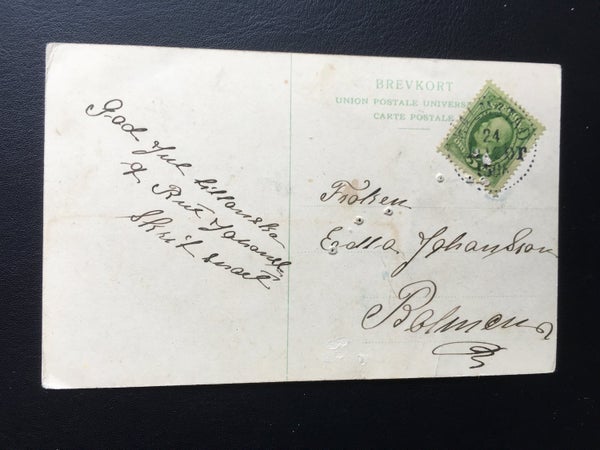 BREVKORT
UNION POSTALE UNIVERS
CARTE POSTALE
24
God Jul tillönskas
af Rut Johans
Skrif snart
Fröken
Edla Johansson
Bolmen